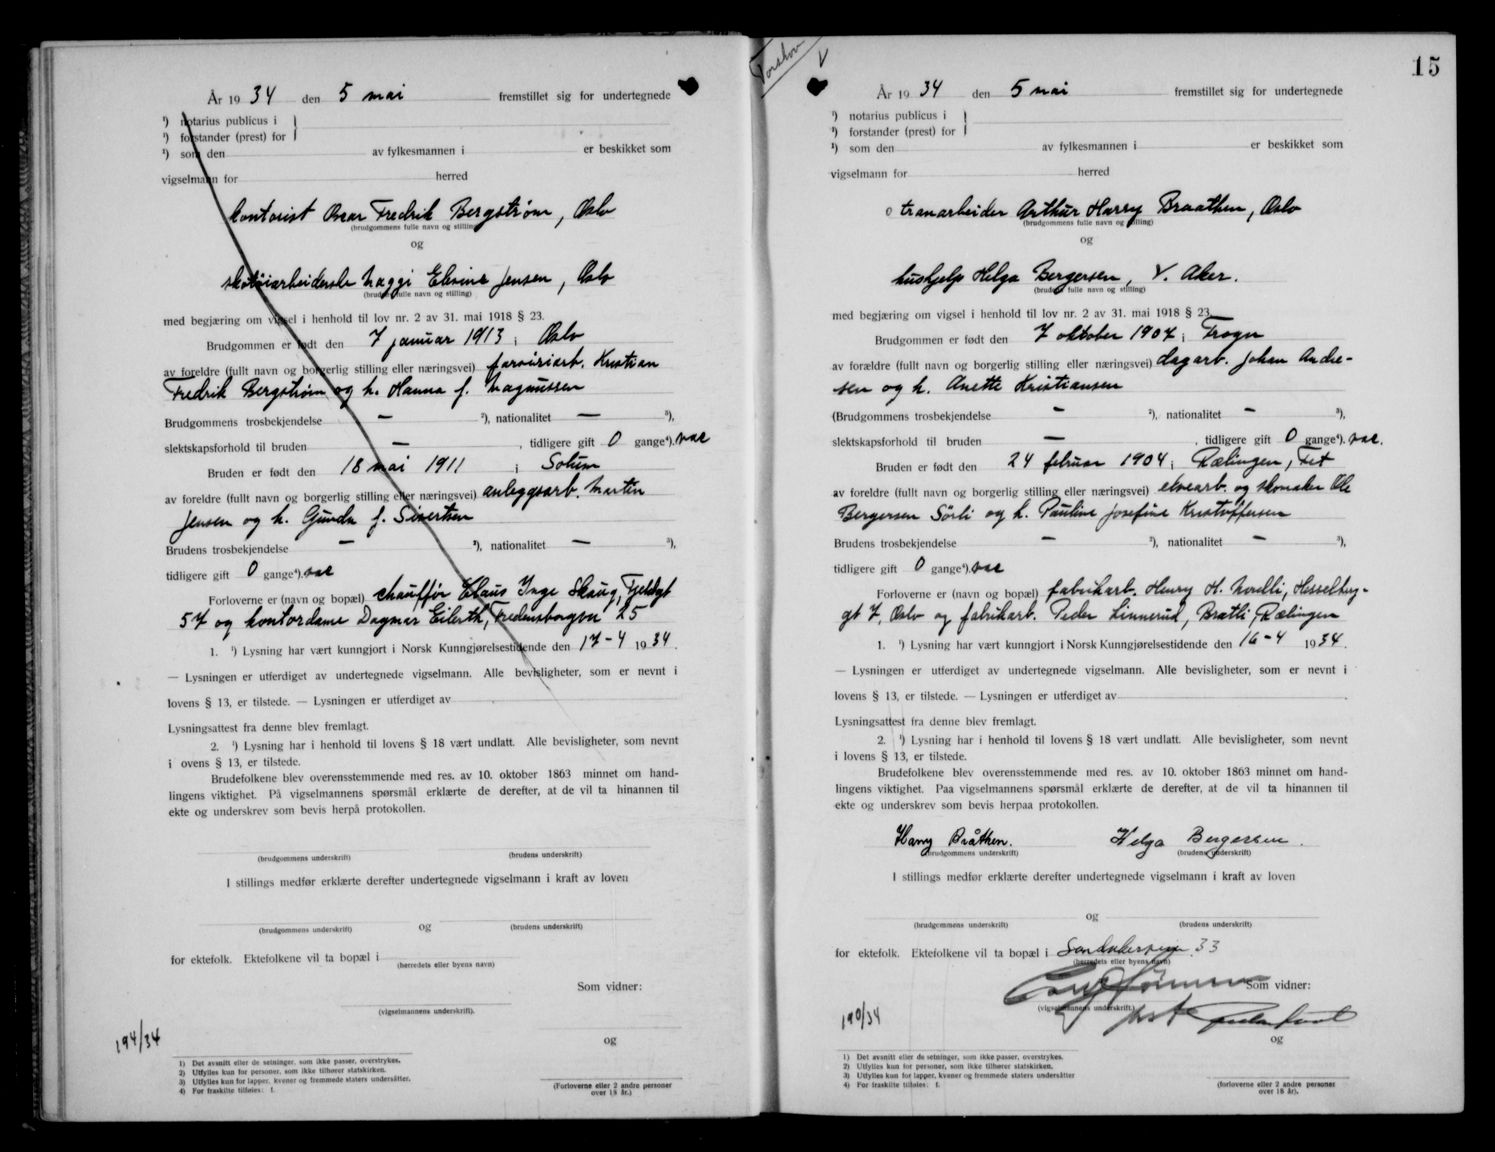 År 19 34 den 5 mai fremstillet sig for undertegnede
¹) notarius publicus i
¹) forstander (prest) for
¹) som den av fylkesmannen i er beskikket som
vigselmann for herred
kontorist Oscar Fredrik Bergstrøm, Oslo
(brudgommens fulle navn og stilling)
og
skotøiarbeiderske Maggi Elevine Jensen, Oslo
(brudens fulle navn og stilling)
med begjæring om vigsel i henhold til lov nr. 2 av 31. mai 1918 § 23.
Brudgommen er født den 7 januar 1913 i Oslo
av foreldre (fullt navn og borgerlig stilling eller næringsvei) farveriarb. Kristian
Fredrik Bergstrøm og h. Hanna f. Magnussen
Brudgommens trosbekjendelse — ²), nationalitet — ³),
slektskapsforhold til bruden — , tidligere gift 0 gange⁴).
Bruden er født den 18 mai 1911 i Solum
av foreldre (fullt navn og borgerlig stilling eller næringsvei) anleggsarb. Martin
Jensen og h. Gunda f. Sivertsen
Brudens trosbekjendelse — ²), nationalitet — ³),
tidligere gift 0 gange⁴).
Forloverne er (navn og bopæl) chauffør Claus Inge Skaug, Fjeldgt
57 og kontordame Dagmar Eilerth, Fredensborgvn 25
1. ¹) Lysning har vært kunngjort i Norsk Kunngjørelsestidende den 17-4 1934.
— Lysningen er utferdiget av undertegnede vigselmann. Alle bevisligheter, som er nevnt i
lovens § 13, er tilstede. — Lysningen er utferdiget av
Lysningsattest fra denne blev fremlagt.
2. ¹) Lysning har i henhold til lovens § 18 vært undlatt. Alle bevisligheter, som nevnt
i ovens § 13, er tilstede.
Brudefolkene blev overensstemmende med res. av 10. oktober 1863 minnet om hand-
lingens viktighet. På vigselmannens spørsmål erklærte de derefter, at de vil ta hinannen til
ekte og underskrev som bevis herpå protokollen.
(brudgommens underskrift) (brudens underskrift)
I stillings medfør erklærte derefter undertegnede vigselmann i kraft av loven
og
(brudgommens underskrift) (brudens underskrift)
for ektefolk. Ektefolkene vil ta bopæl i
(herredets eller byens navn)
Som vidner:
(vigselmannens underskrift).
194/34
og
1) Det avsnitt eller de setninger, som ikke passer, overstrykes.
2) Utfylles kun for personer, som ikke tilhører statskirken.
3) Utfylles kun for lapper, kvener og fremmede staters undersåtter.
4) For fraskilte tilføies: f.
(Forloverne eller 2 andre personer
over 18 år.)
15
År 19 34 den 5 mai fremstillet sig for undertegnede
¹) notarius publicus i
¹) forstander (prest) for
¹) som den av fylkesmannen i er beskikket som
vigselmann for herred
tranarbeider Arthur Harry Braathen, Oslo
(brudgommens fulle navn og stilling)
og
hushjelp Helga Bergersen, V. Aker.
(brudens fulle navn og stilling)
med begjæring om vigsel i henhold til lov nr. 2 av 31. mai 1918 § 23.
Brudgommen er født den 7 oktober 1907 i Frogn
av forældre (fullt navn og borgerlig stilling eller næringsvei) dagarb. Johan Andre-
sen og h. Anette Kristiansen
(Brudgommens trosbekjendelse — ²), nationalitet — ³),
slektskapsforhold til bruden — , tidligere gift 0 gange⁴).
Bruden er født den 24 februar 1904 i Rælingen, Fet
av foreldre (fullt navn og borgerlig stilling eller næringsvei) elvearb. og skomaker Ole
Bergersen Sørli og h. Pauline Josefine Kristoffersen
Brudens trosbekjendelse — ²), nationalitet — ³),
tidligere gift 0 gange⁴).
Forloverne er (navn og bopæl) fabrikarb. Henry H. Novelli, Hesselberg-
gt 7, Oslo og fabrikarb. Peder Linnerud, Bratli, Rælingen
1. ¹) Lysning har vært kunngjort i Norsk Kunngjørelsestidende den 16-4 1934.
— Lysningen er utferdiget av undertegnede vigselmann. Alle bevisligheter, som er nevnt i
lovens § 13, er tilstede. — Lysningen er utferdiget av
Lysningsattest fra denne blev fremlagt.
2. ¹) Lysning har i henhold til lovens § 18 vært undlatt. Alle bevisligheter, som nevnt
i lovens § 13, er tilstede.
Brudefolkene blev overensstemmende med res. av 10. oktober 1863 minnet om hand-
lingens viktighet. Paa vigselmannens spørsmål erklærte de derefter, at de vil ta hinannen til
ekte og underskrev som bevis herpaa protokollen.
Harry Bråthen. Helga Bergersen.
(brudgommens underskrift) (brudens underskrift)
I stillings medfør erklærte derefter undertegnede vigselmann i kraft av loven
og
(brudgommens underskrift) (brudens underskrift)
for ektefolk. Ektefolkene vil ta bopæl i 33
(herredets eller byens navn)
Som vidner:
(vigselmannens underskrift.)
190/34
og
1) Det avsnitt eller de setninger, som ikke passer, overstrykes.
2) Utfylles kun for personer, som ikke tilhører statskirken.
3) Utfylles kun for lapper, kvener og fremmede staters undersåtter
4) For fraskilte tilføies: f.
(forloverne eller 2 andre personer
over 18 år).